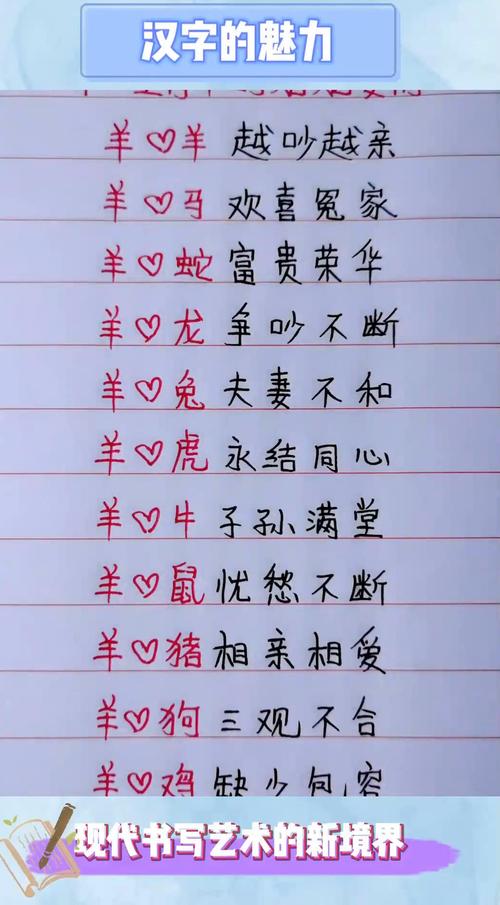 汉字的魅力
羊♡羊 越吵越亲
羊♡马 欢喜冤家
羊♡蛇 富贵荣华
羊♡龙 争吵不断
羊♡兔 夫妻不和
羊♡虎 永结同心
羊♡牛 子孙满堂
羊♡鼠 忧愁不断
羊♡猪 相亲相爱
羊♡狗 三观不合
羊♡鸡 缺少包容
现代书写艺术的新境界